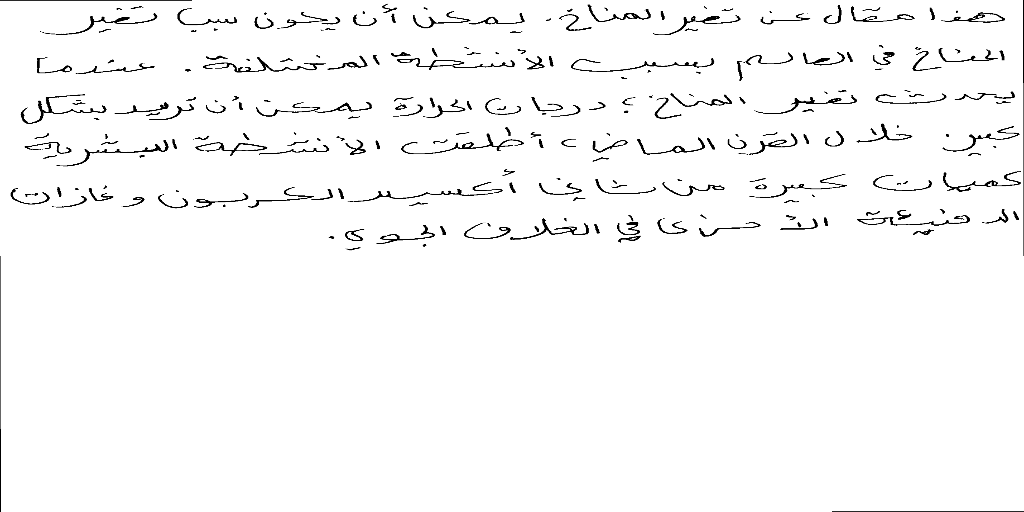 هذا مقال عن تغير المناخ. يمكن أن يكون سبب تغير
المناخ في العالم بسبب الأنشطة المختلفة. عندما
يحدث تغير المناخ، درجات الحرارة يمكن أن تزيد بشكل
كبير. خلال القرن الماضي، أطلقت الأنشطة البشرية
كميات كبيرة من ثاني أكسيد الكربون وغازات
الدفيئة الأخرى في الغلاف الجوي.